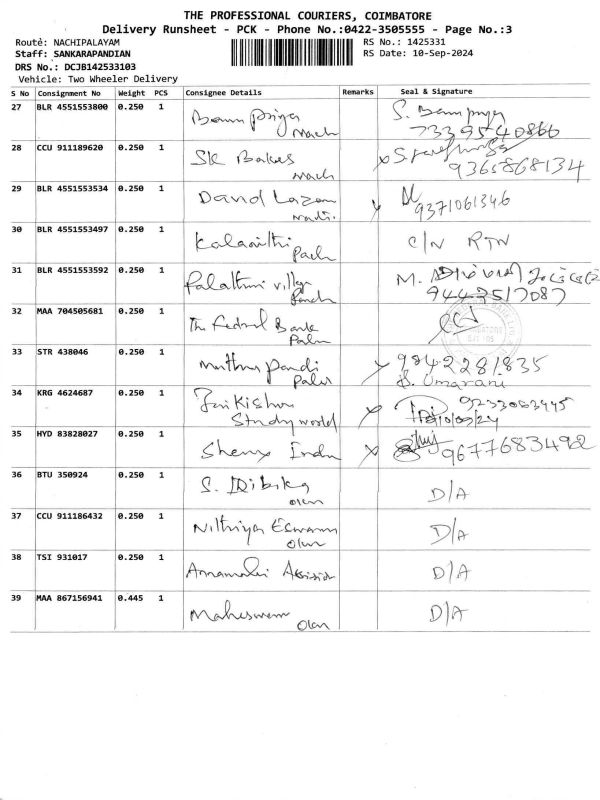 THE PROFESSIONAL COURIERS, COIMBATORE
Delivery Runsheet - PCK - Phone No.:0422-3505555 - Page No.:3
Route: NACHIPALAYAM
RS No.: 1425331
Staff: SANKARAPANDIAN
RS Date: 10-Sep-2024
DRS No.: DCJB142533103
Vehicle: Two Wheeler Delivery
S No Consignment No Weight PCS Consignee Details Remarks Seal & Signature
27 BLR 4551553800 0.250 1 Banu Priya S. Banupriya
Mach 7339540866
28 CCU 911189620 0.250 1 SK Bakes
Mach 9365868134
29 BLR 4551553534 0.250 1 David
9371061346
30 BLR 4551553497 0.250 1 C/N RTN
31 BLR 4551553592 0.250 1 Palathurai M.
9443517087
32 MAA 704505681 0.250 1 The Fedral Bank
Palu
33 STR 438046 0.250 1 Muthu Pandi 9842281835
Palu S. Umarani
34 KRG 4624687 0.250 1 Jai Kishu
Study world 10/09/24
35 HYD 83828027 0.250 1 9677683492
36 BTU 350924 0.250 1 S. D/A
Olan
37 CCU 911186432 0.250 1 Nithiya Eswaran D/A
Olan
38 TSI 931017 0.250 1 Annamalai D/A
39 MAA 867156941 0.445 1 Maheswari D/A
Olan